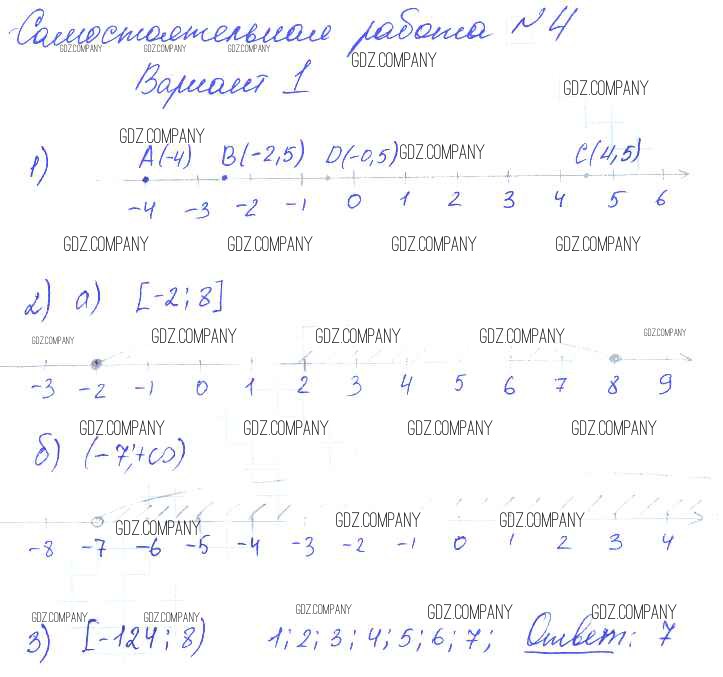 Самостоятельная работа №4
GDZ.COMPANY GDZ.COMPANY GDZ.COMPANY GDZ.COMPANY
Вариант 1 GDZ.COMPANY
GDZ.COMPANY
1) A(-4) B(-2,5) D(-0,5) GDZ.COMPANY C(4,5)
-4 -3 -2 -1 0 1 2 3 4 5 6
GDZ.COMPANY GDZ.COMPANY GDZ.COMPANY GDZ.COMPANY
2) а) [-2; 8]
GDZ.COMPANY GDZ.COMPANY GDZ.COMPANY GDZ.COMPANY GDZ.COMPANY
-3 -2 -1 0 1 2 3 4 5 6 7 8 9
GDZ.COMPANY GDZ.COMPANY GDZ.COMPANY GDZ.COMPANY
б) (-7;+∞)
GDZ.COMPANY GDZ.COMPANY GDZ.COMPANY
-8 -7 -6 -5 -4 -3 -2 -1 0 1 2 3 4
GDZ.COMPANY GDZ.COMPANY GDZ.COMPANY GDZ.COMPANY GDZ.COMPANY
3) [-124; 8) 1; 2; 3; 4; 5; 6; 7; Ответ: 7